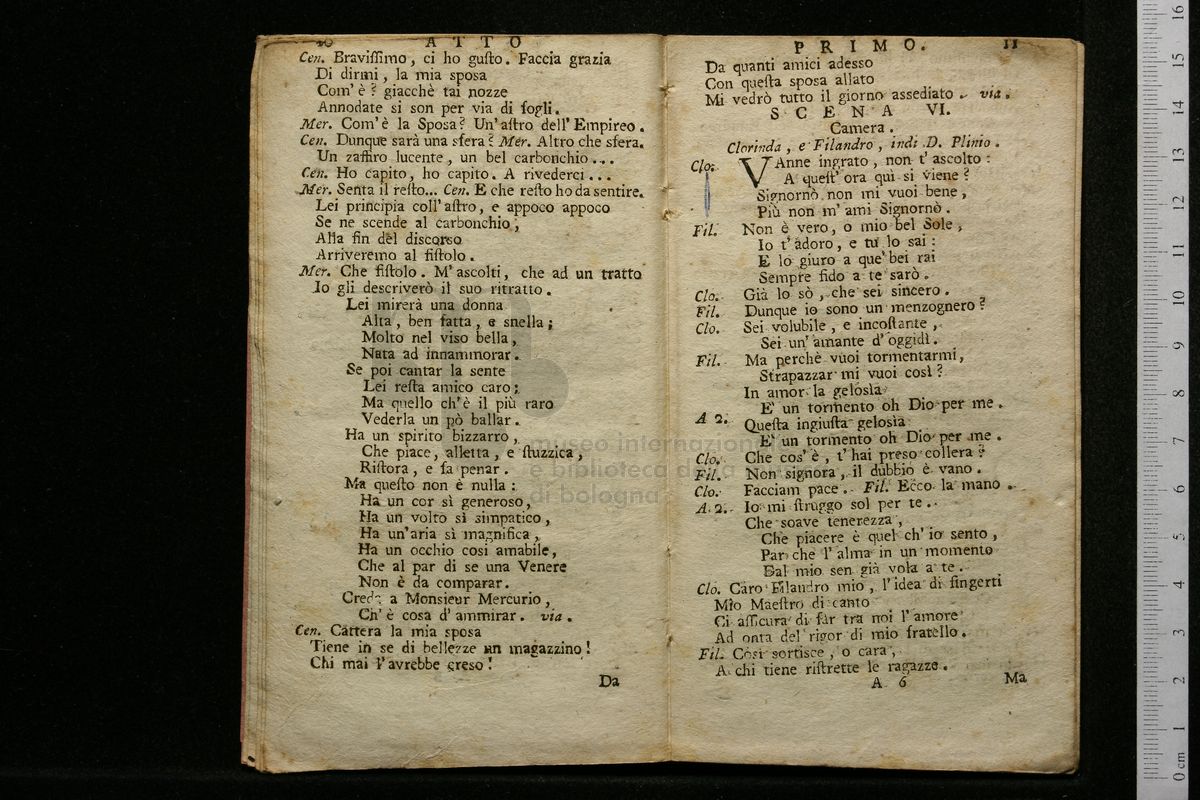 10 A T T O
Cen. Bravissimo, ci ho gusto. Faccia grazia
Di dirmi, la mia sposa
Com' è? giacchè tai nozze
Annodate si son per via di fogli.
Mer. Com'è la Sposa? Un'astro dell' Empireo.
Cen. Dunque sarà una sfera? Mer. Altro che sfera.
Un zaffiro lucente, un bel carbonchio...
Cen. Ho capito, ho capito. A rivederci...
Mer. Senta il resto... Cen. E che resto ho da sentire.
Lei principia coll'astro, e appoco appoco
Se ne scende al carbonchio,
Alla fin del discorso
Arriveremo al fistolo.
Mer. Che fistolo. M'ascolti, che ad un tratto
Io gli descriverò il suo ritratto.
Lei mirerà una donna
Alta, ben fatta, e snella;
Molto nel viso bella,
Nata ad innammorar.
Se poi cantar la sente
Lei resta amico caro;
Ma quello ch'è il più raro
Vederla un pò ballar.
Ha un spirito bizzarro,
Che piace, alletta, e stuzzica,
Ristora, e fa penar.
Ma questo non è nulla:
Ha un cor sì generoso,
Ha un volto sì simpatico,
Ha un'aria sì magnifica,
Ha un occhio così amabile,
Che al par di se una Venere
Non è da comparar.
Creda a Monsieur Mercurio,
Ch' è cosa d'ammirar. via.
Cen. Cattera la mia sposa
Tiene in se di bellezze un magazzino!
Chi mai l'avrebbe creso!
Da
P R I M O. 11
Da quanti amici adesso
Con questa sposa allato
Mi vedrò tutto il giorno assediato. via.
S C E N A VI.
Camera.
Clorinda, e Filandro, indi D. Plinio.
Clo. VAnne ingrato, non t'ascolto:
A quest' ora qui si viene?
Signornò non mi vuoi bene,
Più non m'ami Signornò.
Fil. Non è vero, o mio bel Sole,
Io t'adoro, e tu lo sai:
E lo giuro a que' bei rai
Sempre fido a te sarò.
Clo. Già lo sò, che sei sincero.
Fil. Dunque io sono un menzognero?
Clo. Sei volubile, e incostante,
Sei un'amante d'oggidì.
Fil. Ma perchè vuoi tormentarmi,
Strapazzar mi vuoi così?
In amor la gelosìa
E' un tormento oh Dio per me.
A 2. Questa ingiusta gelosìa
E' un tormento oh Dio per me.
Clo. Che cos'è, t'hai preso collera?
Fil. Non signora, il dubbio è vano.
Clo. Facciam pace. Fil. Ecco la mano.
A 2. Io mi struggo sol per te.
Che soave tenerezza,
Che piacere è quel ch'io sento,
Par che l'alma in un momento
Dal mio sen già vola a te.
Clo. Caro Filandro mio, l'idea di fingerti
Mio Maestro di canto
Ci assicura di far tra noi l'amore
Ad onta del rigor di mio fratello.
Fil. Così sortisce, o cara,
A chi tiene ristrette le ragazze.
A 6 Ma
museo internazionale
e biblioteca della
di bologna
0 cm 1 2 3 4 5 6 7 8 9 10 11 12 13 14 15 16